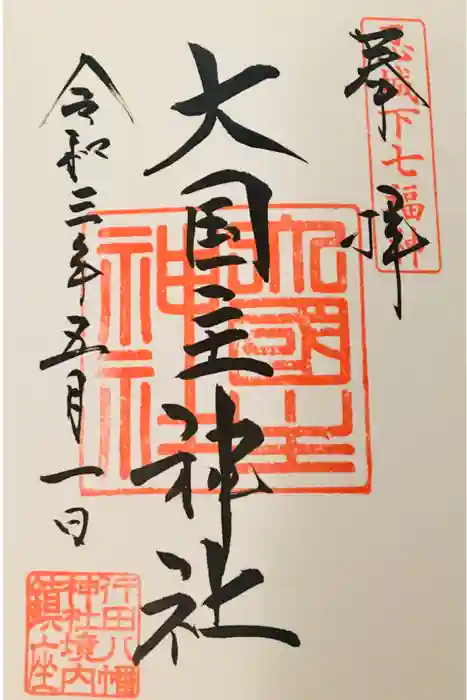 忍城下七福神
奉拝
大国主神社
大國主神社
令和三年五月一日
行田八幡
神社境内
鎮座